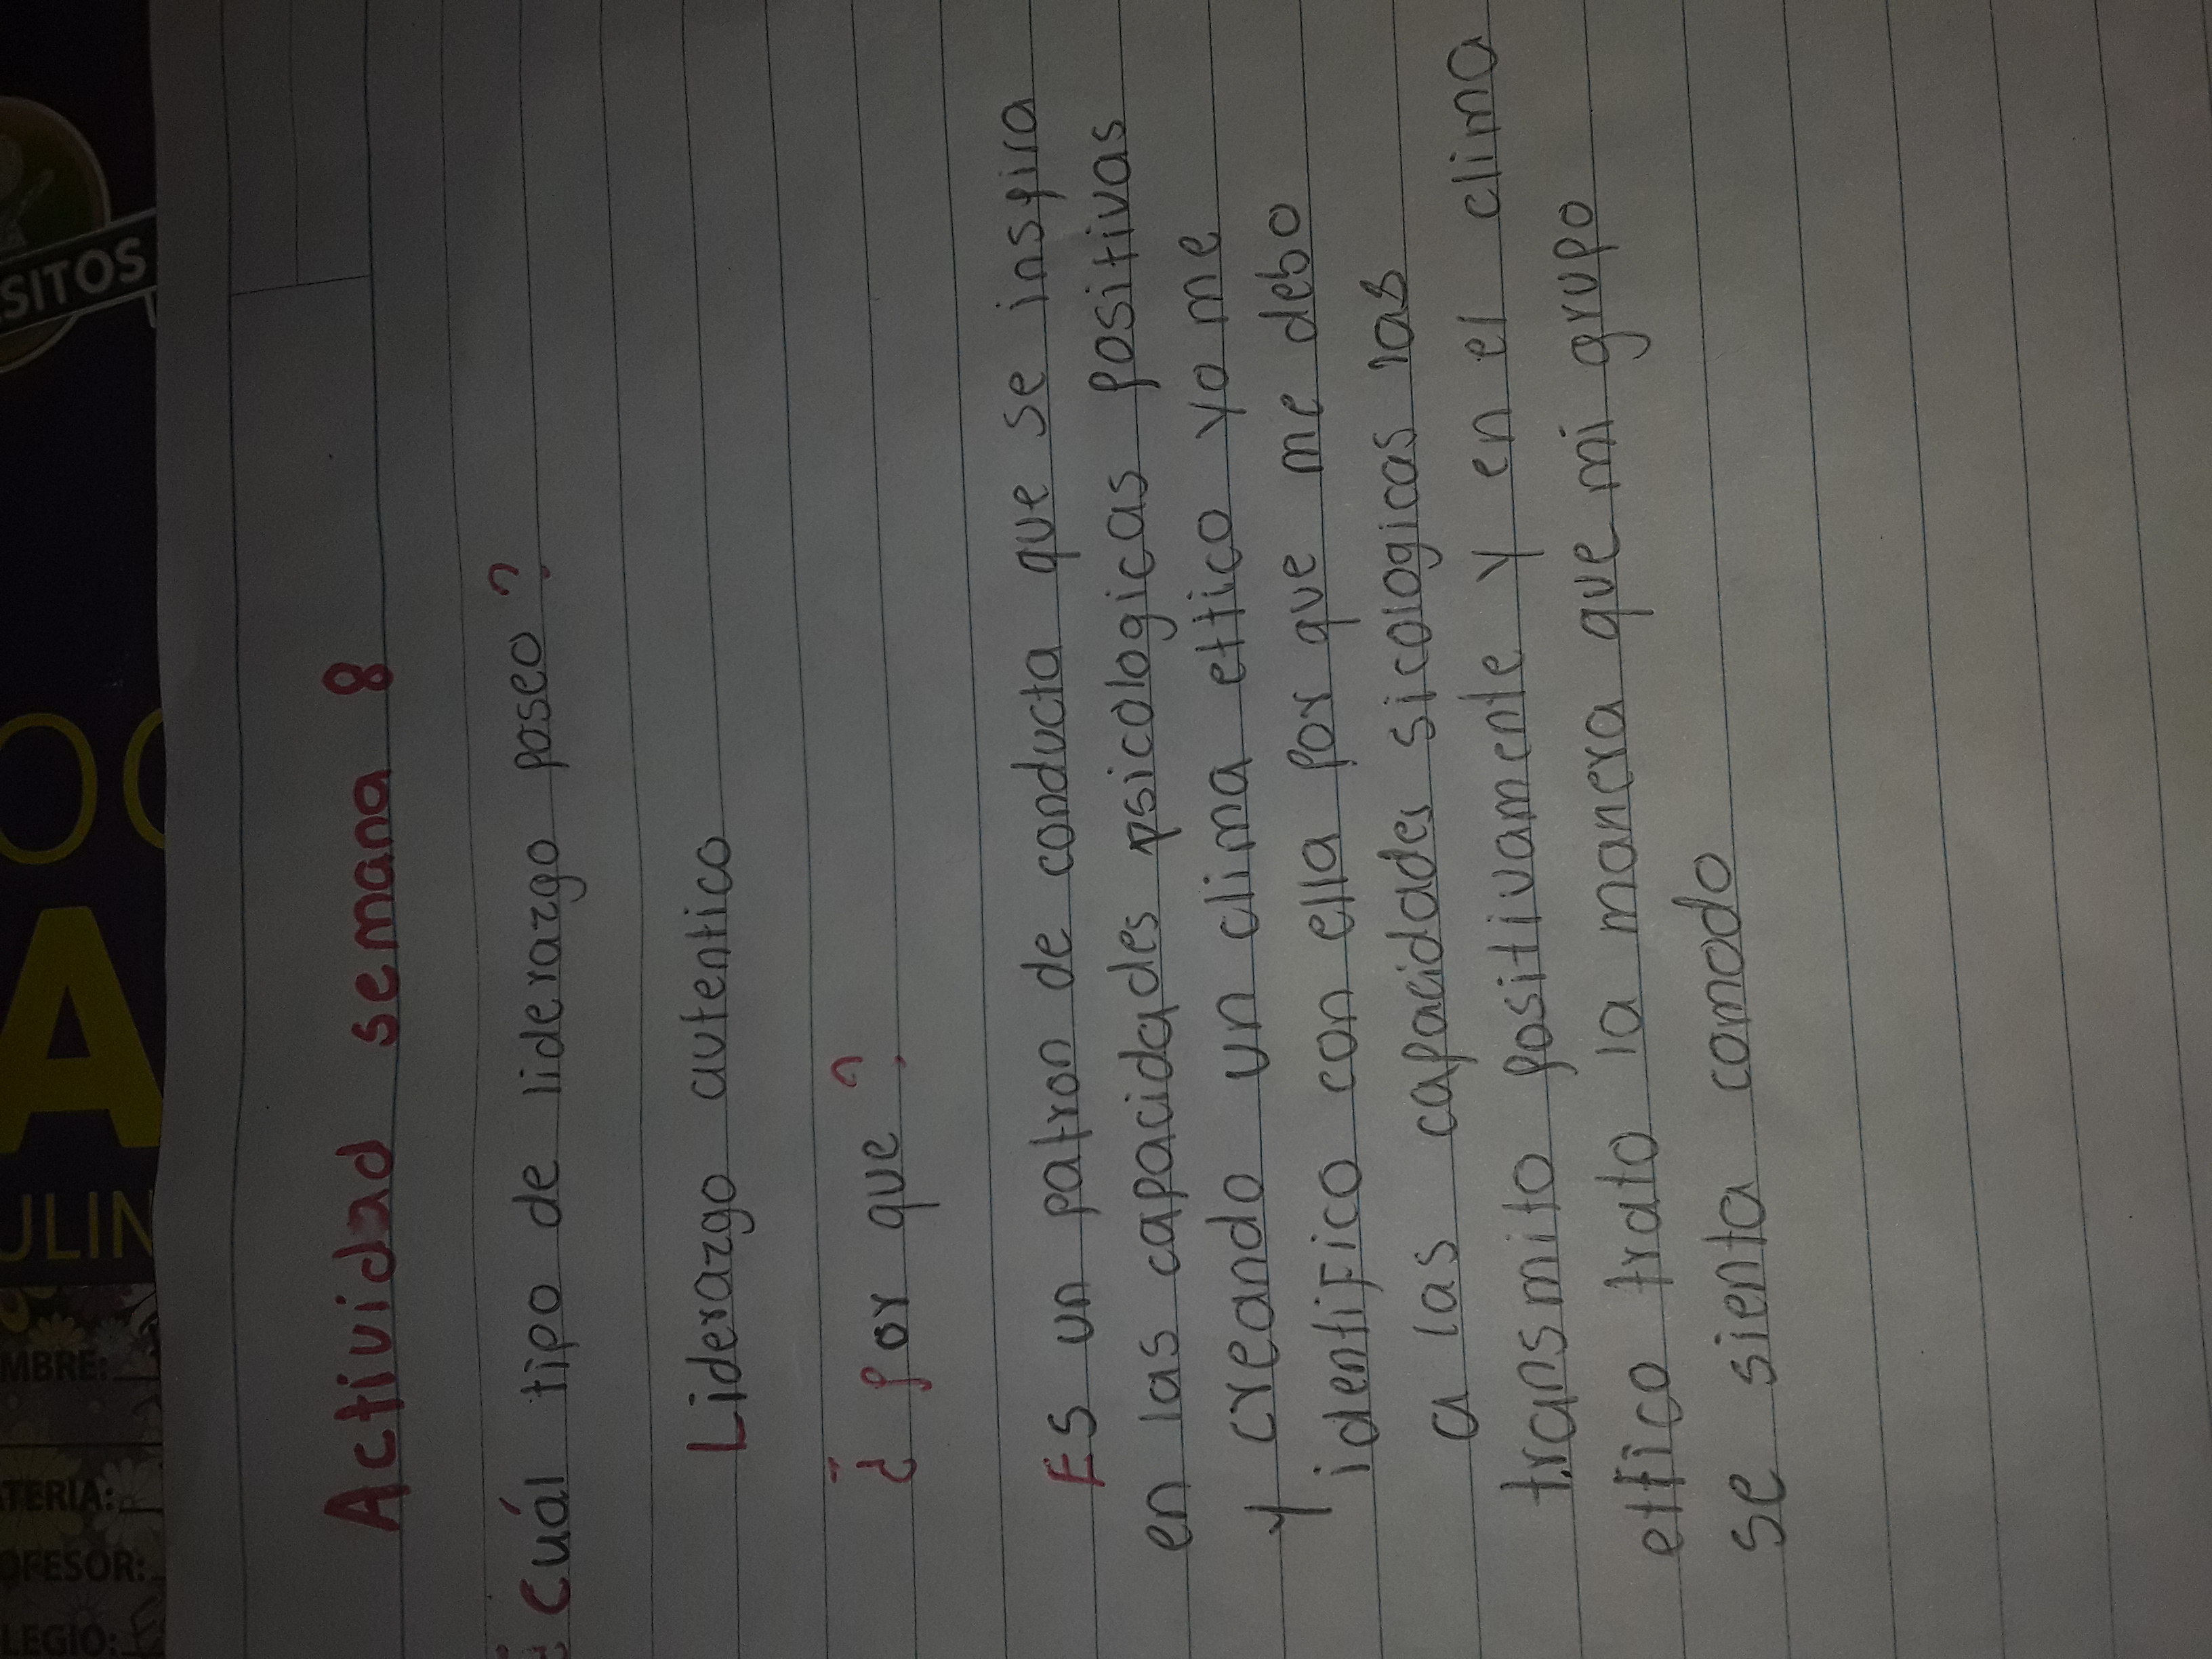 Actividad semana 8
¿Cuál tipo de liderazgo poseo?
Liderazgo autentico
¿por que?
Es un patron de conducta que se inspira
en las capacidades psicologicas positivas
y creando un clima ettico yo me
identifico con ella por que me debo
a las capacidades sicologicas las
transmito positivamente y en el clima
ettico trato la manera que mi grupo
se sienta comodo
SITOS
A
ULIN
MBRE:
TERIA:
OFESOR:
LEGIO: